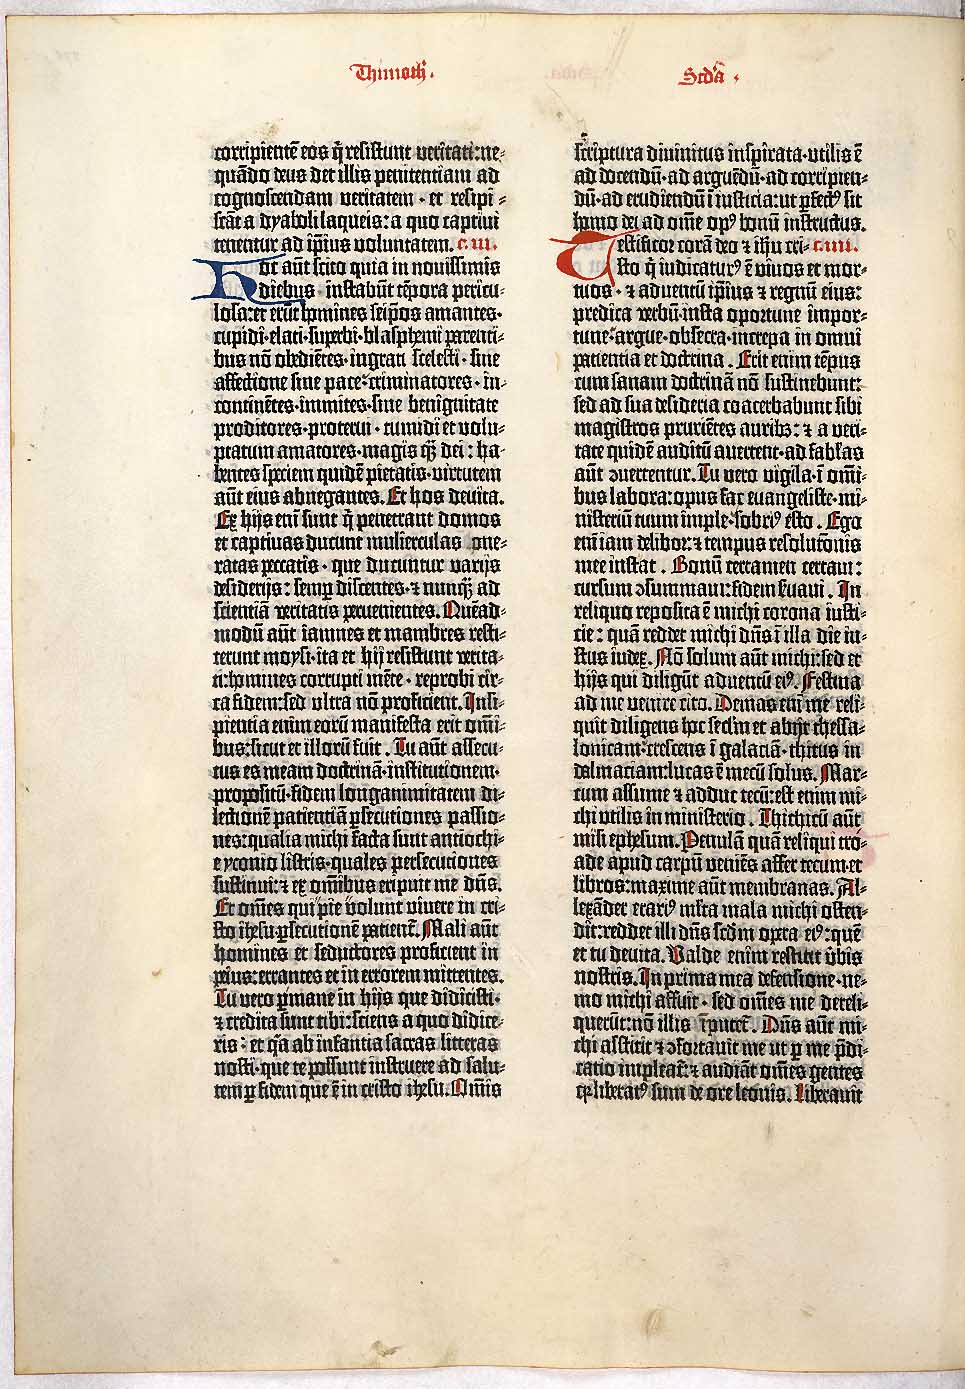 Thimoth̄.
corripientē eos q̄ resistunt veritati:ne⸗
quādo deus det illis penitentiam ad
cognoscendam veritatem · et resipi⸗
scāt a dyaboli laqueis: a quo captiui
tenentur ad ip̄ius voluntatem. c. iii.
Hoc aūt scito quia in nouissimis
diebus · instabūt tēpora pericu⸗
losa:et erūt homines seip̄os amantes·
cupidi·elati·superbi·blasphemi parenti⸗
bus nō obediētes·ingrati scelesti· sine
affectione sine pace·criminatores · in⸗
continētes·immites·sine benignitate
proditores·proterui · tumidi et volu⸗
ptatum amatores·magis q̄ꝫ dei : ha⸗
bentes speciem quidē pietatis·virtutem
aūt eius abnegantes. Et hos deuita.
Ex hijs enī sunt q̄ penetrant domos
et captiuas ducunt mulierculas one⸗
ratas peccatis · que ducuntur varijs
desiderijs: semꝑ discentes·⁊ nunq̄ꝫ ad
scientiā veritatis peruenientes. Quēad⸗
modū aūt iamnes et mambres resti⸗
terunt moysi·ita et hij resistunt verita⸗
ti:homines corrupti mēte · reprobi cir⸗
ca fidem:sed vltra nō proficient. Insi⸗
pientia enim eorū manifesta erit om̄i⸗
bus:sicut et illorū fuit . Tu aūt assecu⸗
tus es meam doctrinā·institutionem·
propositū·fidem longanimitatem di⸗
lectionē patientiā ꝑsecutiones passio⸗
nes:qualia michi facta sunt antiochi⸗
e yconio listris·quales persecutiones
sustinui:⁊ ex om̄ibus eripuit me dn̄s.
Et om̄es qui pie volunt viuere in cri⸗
sto ihesu·ꝑsecutionē patient̄. Mali aūt
homines et seductores proficient in
peius:errantes et in errorem mittentes.
Tu vero ꝑmane in hijs que didicisti·
⁊ credita sunt tibi:sciens a quo didice⸗
ris : et q̄a ab infantia sacras litteras
nosti·que te possunt instruere ad salu⸗
tem ꝑ fidem que ē in cristo ihesu. Om̄is
Scd̄a .
scriptura diuinitus inspirata·vtilis ē
ad docendū·ad arguēdū·ad corripien⸗
dū·ad erudiendū ī iusticia:ut ꝑfectꝰ sit
homo dei ad om̄e opꝰ bonū instructus.
Testificor corā deo ⁊ ihū cri⸗ c. iiii.
sto q̄ iudicaturꝰ ē viuos et mor⸗
tuos · ⁊ aduentū ip̄ius ⁊ regnū eius:
predica verbū·insta oportune impor⸗
tune·argue·obsecra·increpa in omni
patientia et doctrina . Erit enim tēpus
cum sanam doctrinā nō sustinebunt:
sed ad sua desideria coacerbabunt sibi
magistros pruriētes auribꝫ: ⁊ a veri⸗
tate quidē auditū auertent·ad fabulas
aūt ꝯuertentur. Tu vero vigila·ī om̄i⸗
bus labora:opus fac euangeliste·mi⸗
nisteriū tuum imple·sobriꝰ esto . Ego
enī iam delibor:⁊ tempus resolutōnis
mee instat . Bonū certamen certaui:
cursum ꝯsummaui:fidem ẜuaui . In
reliquo reposita ē michi corona iusti⸗
cie : quā reddet michi dn̄s ī illa die iu⸗
stus iudex. Nō solum aūt michi:sed et
hijs qui diligūt aduentū eiꝰ. Festina
ad me venire cito. Demas enī me reli⸗
quit diligens hoc seclm̄ et abijt thessa⸗
lonicam:crescens ī galaciā· thitus in
dalmaciam:lucas ē mecū solus. Mar⸗
cum assume ⁊ adduc tecū:est enim mi⸗
chi vtilis in ministerio . Thithicū aūt
misi ephesum. Penulā quā reliqui tro⸗
ade apud carpū veniēs affer tecum·et
libros:maxime aūt membranas. Al⸗
lexāder erariꝰ m̄lta mala michi osten⸗
dit:reddet illi dn̄s scd̄m opera eiꝰ:quē
et tu deuita. Valde enim restitit v̄bis
nostris. In prima mea defensione·ne⸗
mo michi affuit · sed om̄es me dereli⸗
querūt:nō illis īputet̄. Dn̄s aūt mi⸗
chi astitit ⁊ ꝯfortauit me ut ꝑ me p̄di⸗
catio impleat̄:⁊ audiāt om̄es gentes
q̄ liberatꝰ sum de ore leonis. Liberauit